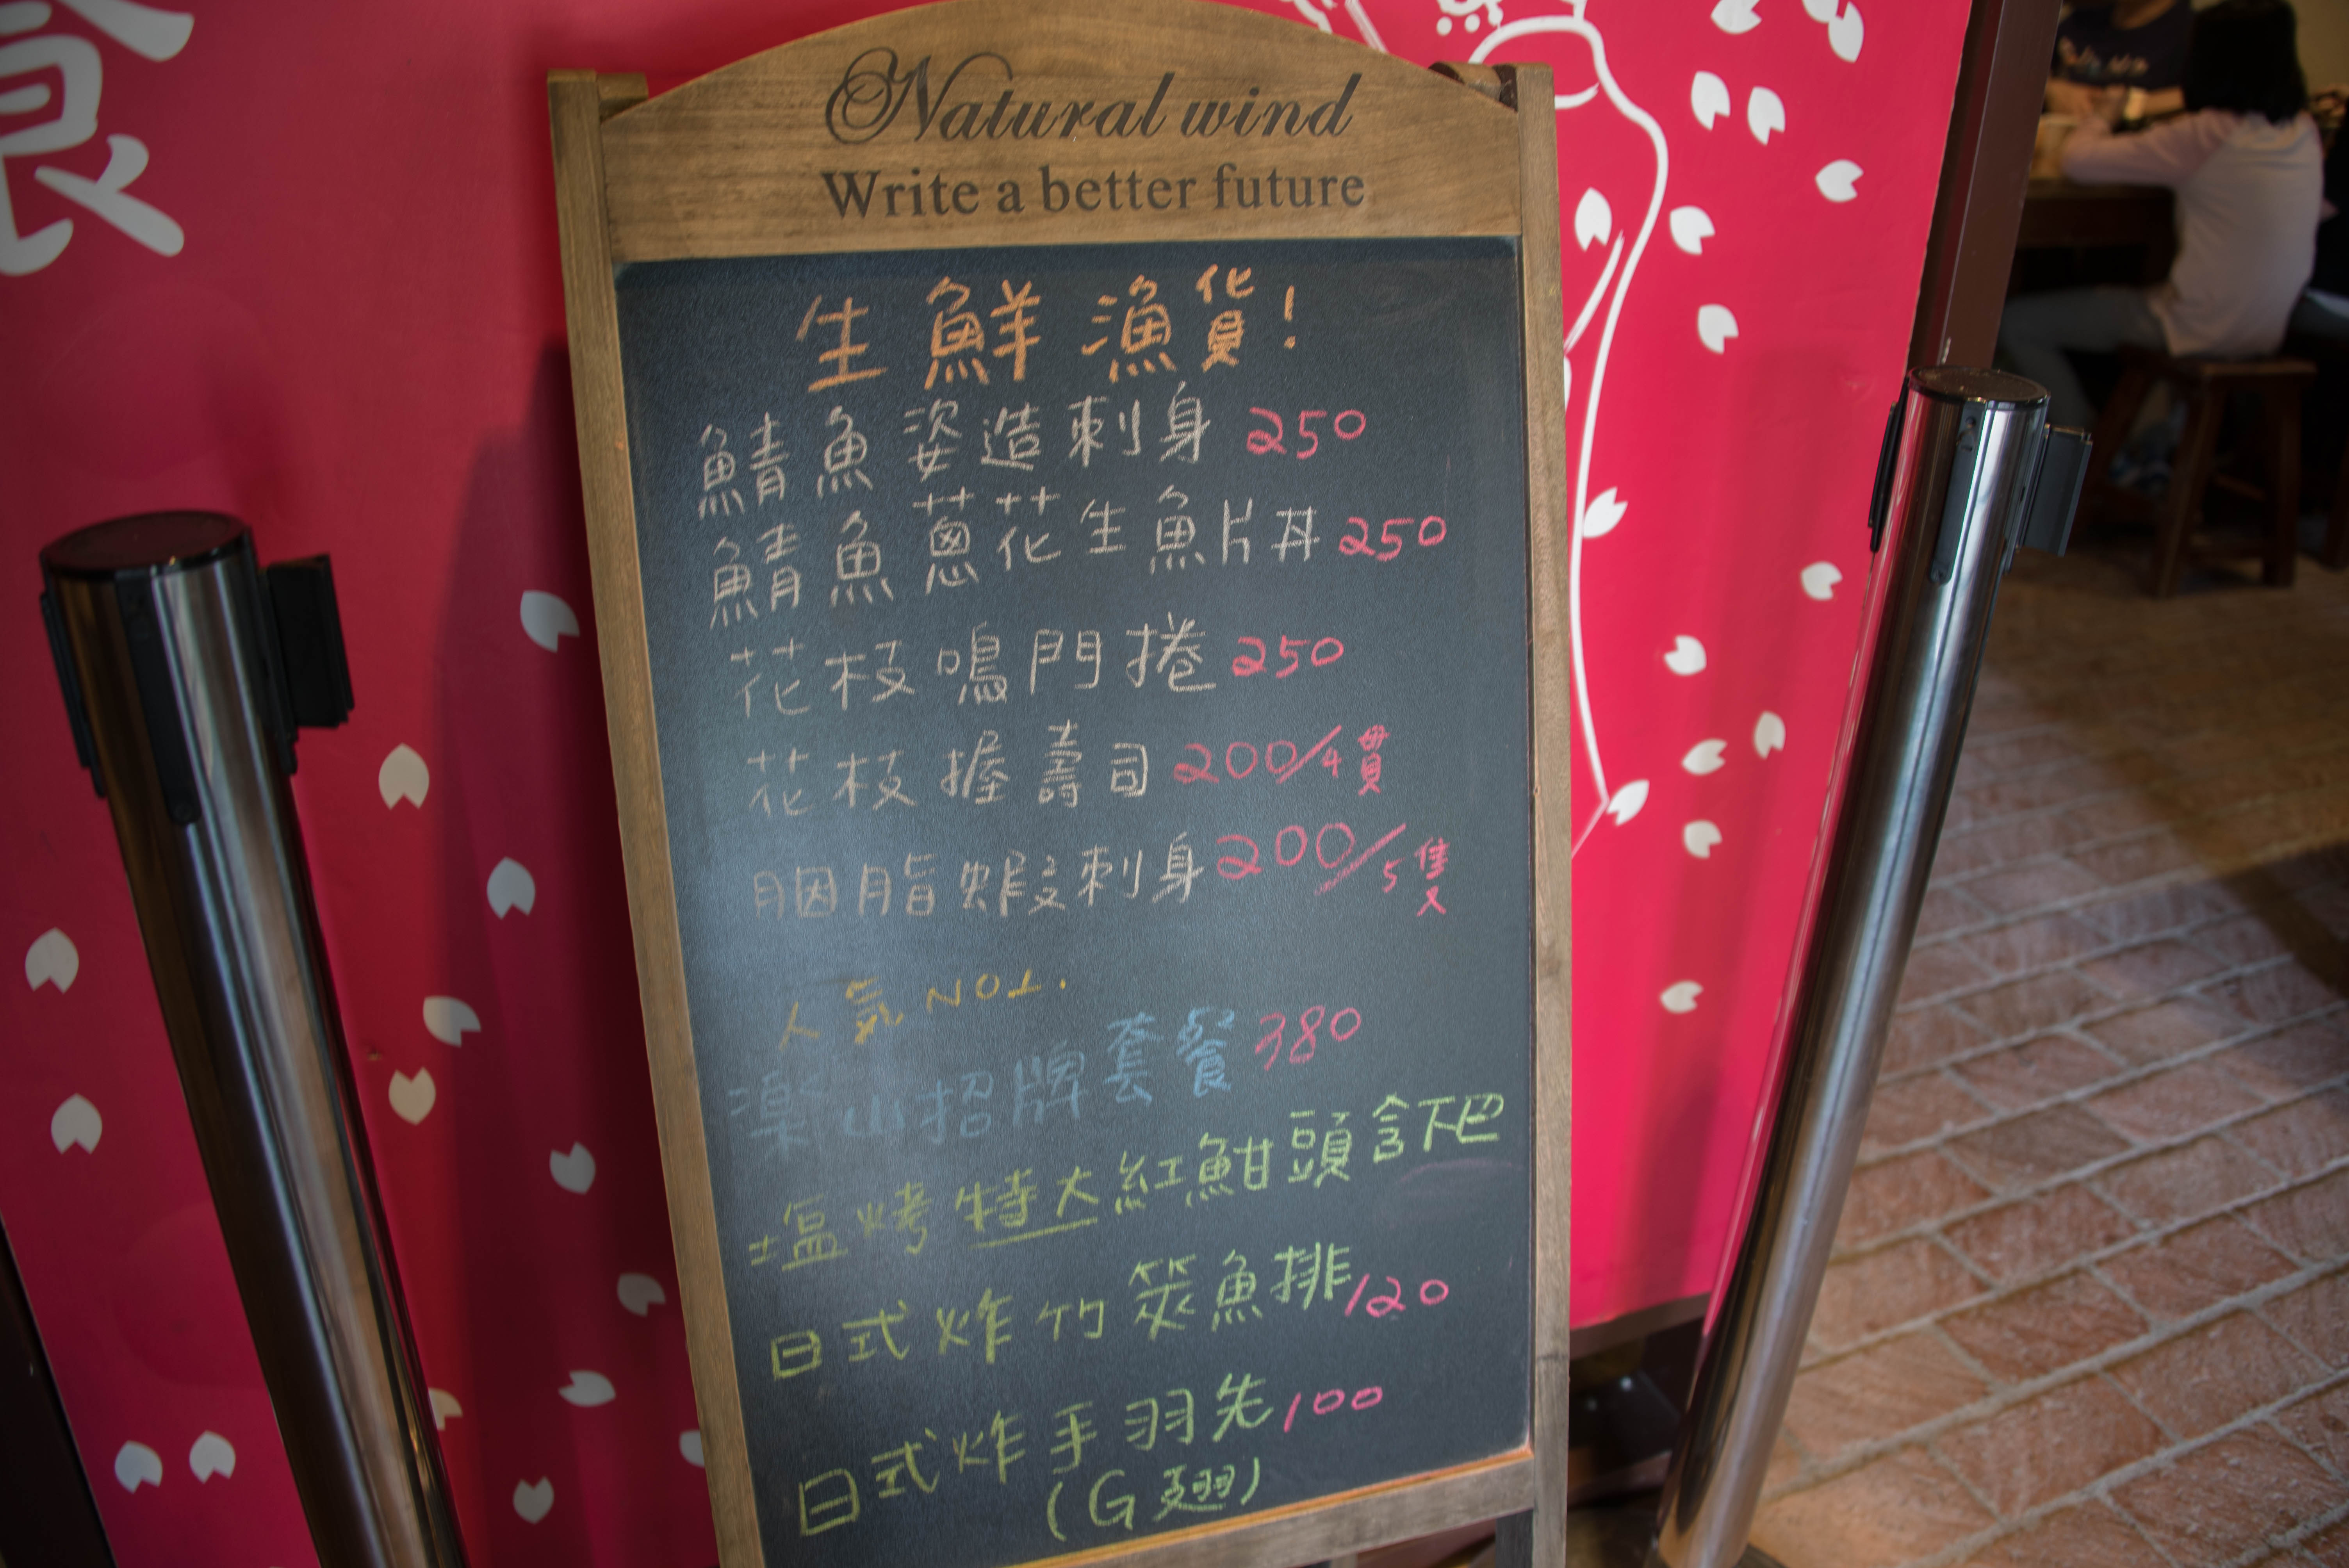 食
Natural wind
Write a better future
生鮮漁貨!
鯖魚姿造刺身 250
鯖魚蔥花生魚片丼 250
花枝鳴門捲 250
花枝握壽司 200/4貫
胭脂蝦刺身 200/5隻
人気 NO1.
漁樂山招牌套餐 380
塩烤特大紅魽頭含下巴
日式炸竹筴魚排 120
日式炸手羽先 100
(G翅)